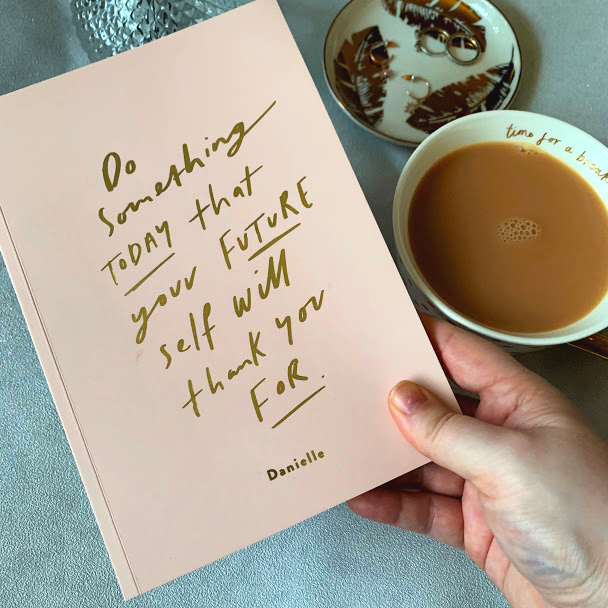 Do
something
TODAY that
your FUTURE
self will
thank you
FOR.
Danielle
time for a break